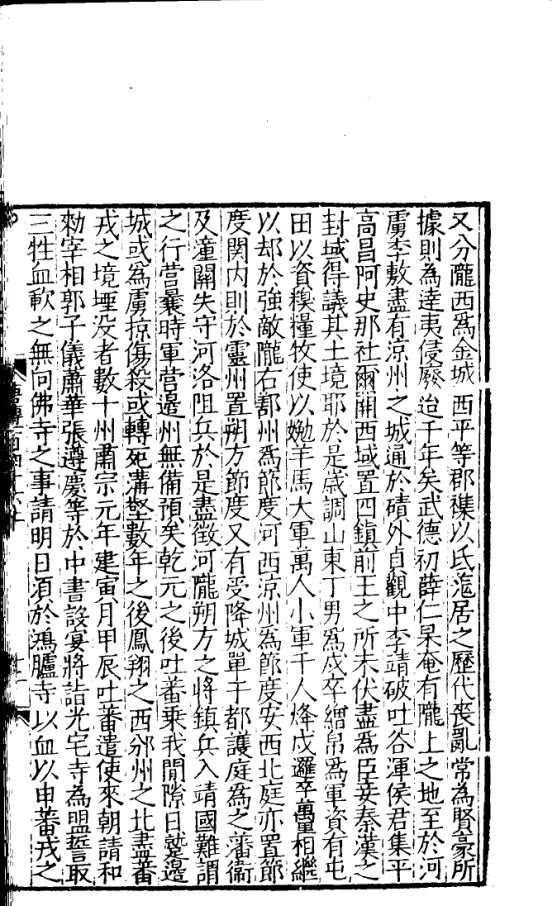 又分隴西為金城西平等郡雜以氐羌居之歷代喪亂常為賢豪所
據則為遠夷侵廢迨千年矣武德初薛仁杲奄有隴上之地至於河
虜李敷盡有涼州之城通於磧外貞觀中李靖破吐谷渾侯君集平
高昌阿史那社爾開西域置四鎮前王之所未伏盡為臣妾秦漢之
封域得議其土境耶於是歲調山東丁男為戍卒繒帛為軍資有屯
田以資糗糧牧使以娩羊馬大軍萬人小軍千人烽戍邏卒萬里相繼
以却於強敵隴右鄯州為節度河西涼州為節度安西北庭亦置節
度関内則於靈州置朔方節度又有受降城單于都護庭為之藩衛
及潼關失守河洛阻兵於是盡徵河隴朔方之將鎮兵入靖國難謂
之行營曩時軍營邊州無備預矣乾元之後吐蕃乗我間隙日蹙邊
城或為虜掠傷殺或轉死溝壑數年之後鳳翔之西邠州之北盡蕃
戎之境堙没者數十州肅宗元年建寅月甲辰吐蕃遣使來朝請和
勑宰相郭子儀蕭華張遵慶等於中書設宴將詣光宅寺為盟誓取
三牲血歃之無向佛寺之事請明日須於鴻臚寺以血以申蕃戎之